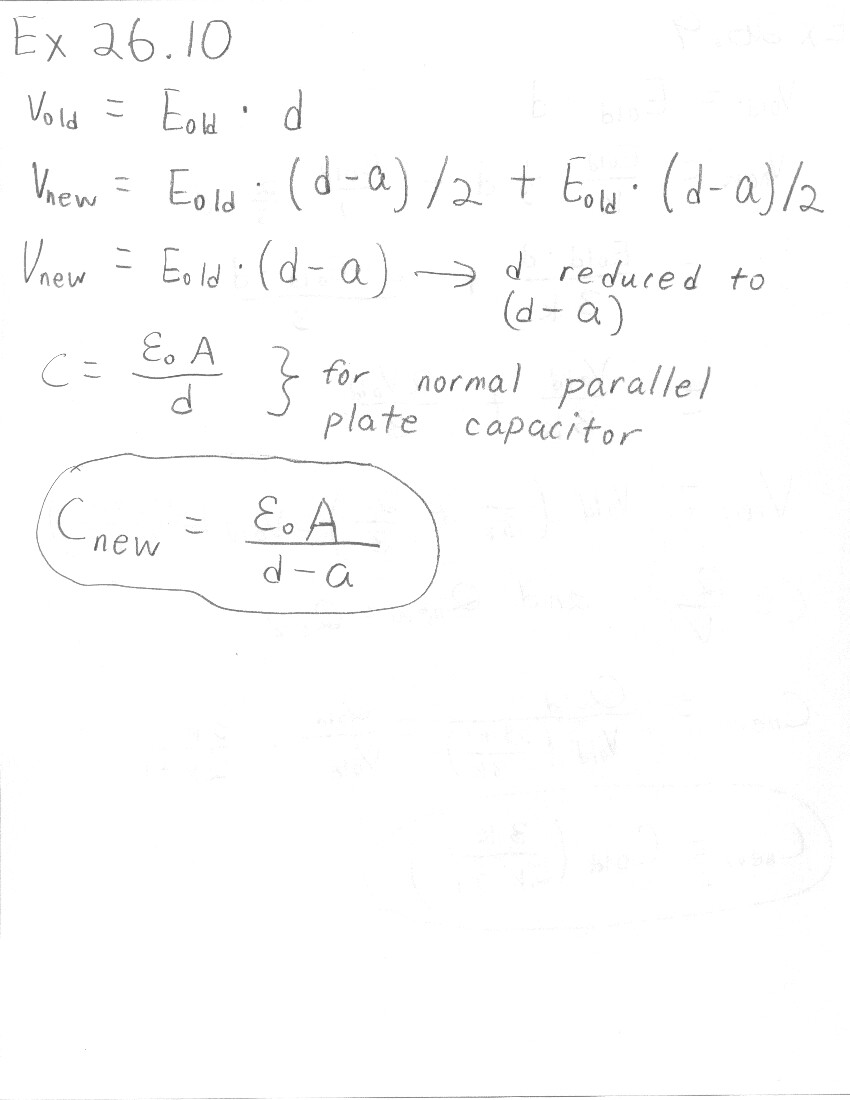 Ex 26.10
Vold = Eold · d
Vnew = Eold · (d-a)/2 + Eold · (d-a)/2
Vnew = Eold · (d-a) → d reduced to (d-a)
C = ε₀ A / d } for normal parallel plate capacitor
Cnew = ε₀ A / d-a